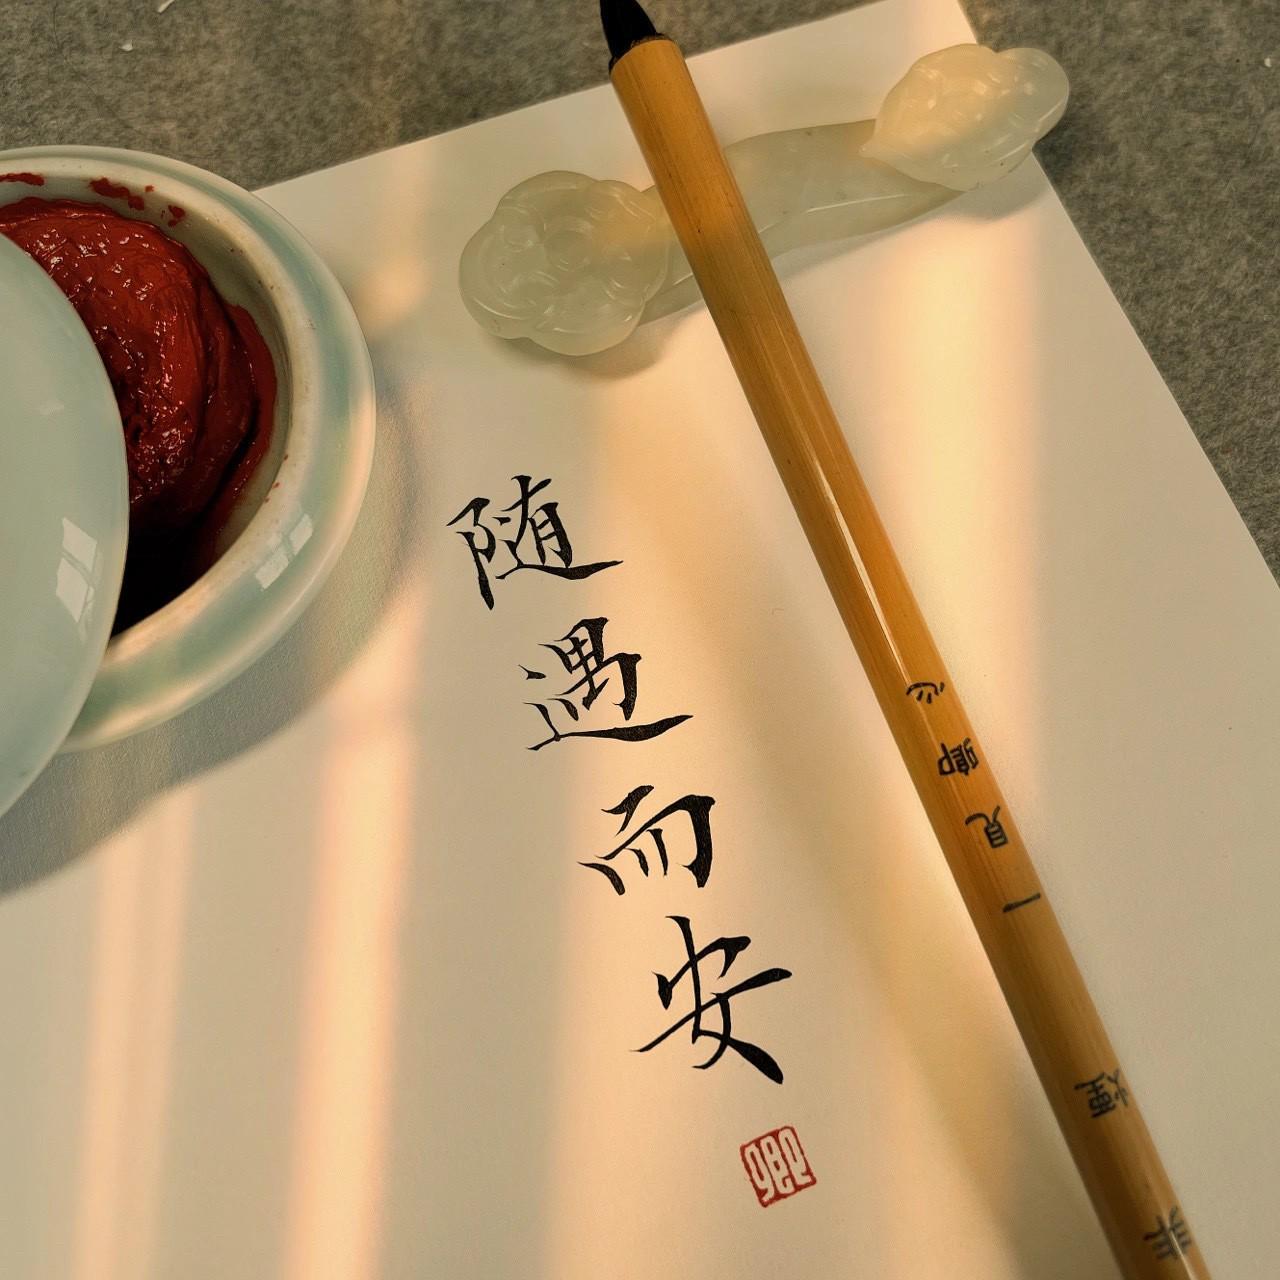 随遇而安
一見卿心